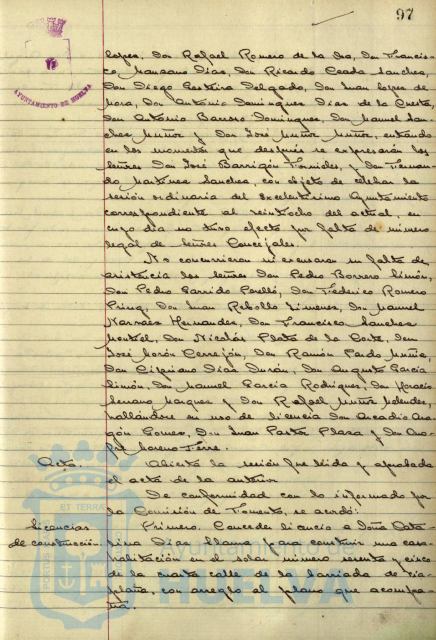 97
AYUNTAMIENTO DE HUELVA
López, Don Rafael Romero de la Osa, Don Francis-
co Manzano Días, Don Ricardo Ceada Sanches,
Don Diego Delgado, Don Juan López de
Mora, Don Antonio Dominguez Días de la Cuesta,
Don Antonio Barroso Dominguez, Don Manuel San-
ches Muñoz y Don José Muñoz Muñoz, entrando
en los momentos que después se expresarán los
señores Don José Barrigón Fornieles, y Don Fernan-
do Martínez Sanches, con objeto de celebrar la
sesión ordinaria del Excelentísimo Ayuntamiento
correspondiente al veintiocho del actual, en
cuyo día no tuvo efecto por falta de número
legal de señores Concejales.
No concurrieron ni excusaron su falta de
asistencia los señores Don Pedro Borrero Limón,
Don Pedro Garrido Perelló, Don Federico Romero
Don Juan Rebollo Jimenes, Don Manuel
Narvaes Hernandes, Don Francisco Sanches
Montiel, Don Nicolás Plata de la Corte, Don
José Morón Cerrejón, Don Ramón Pardo Muñiz,
Don Cipriano Días Durán, Don Augusto García
Limón, Don Manuel García Rodrigues, Don Horacio
Marques y Don Rafael Muñoz
hallándose en uso de licencia Don Arcadio Ara-
gón Gomes, Don Juan Pastor Plaza y Don
Moreno
Acta. Abierta la sesión fue leída y aprobada
el acta de la anterior
De conformidad con lo informado por
la Comisión de Fomento, se acordó:
Licencias Primero. Conceder licencia a Doña Cata-
de construcción. lina Díaz Llama, para construir una casa
habitación en el solar número sesenta y cinco
de la cuarta calle de la barriada de
con arreglo al plano que acompa-
ña.
ET TERRA
PORTUS
Ayuntamiento de
HUELVA